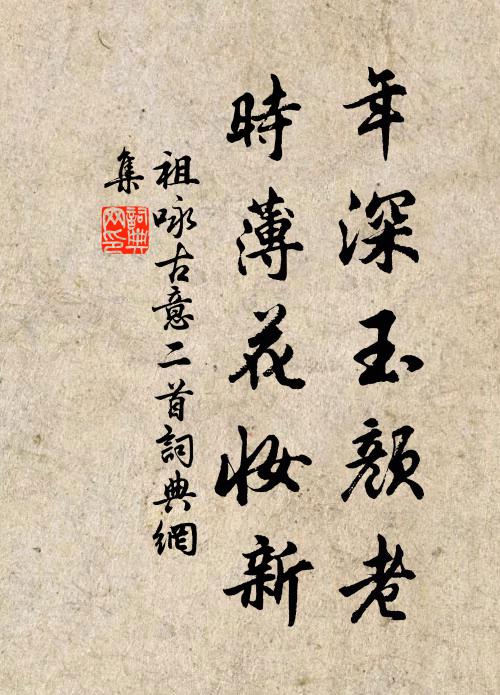 年深玉顏老
時薄花妝新
祖咏古意二首詞典網
集
詞典
网印